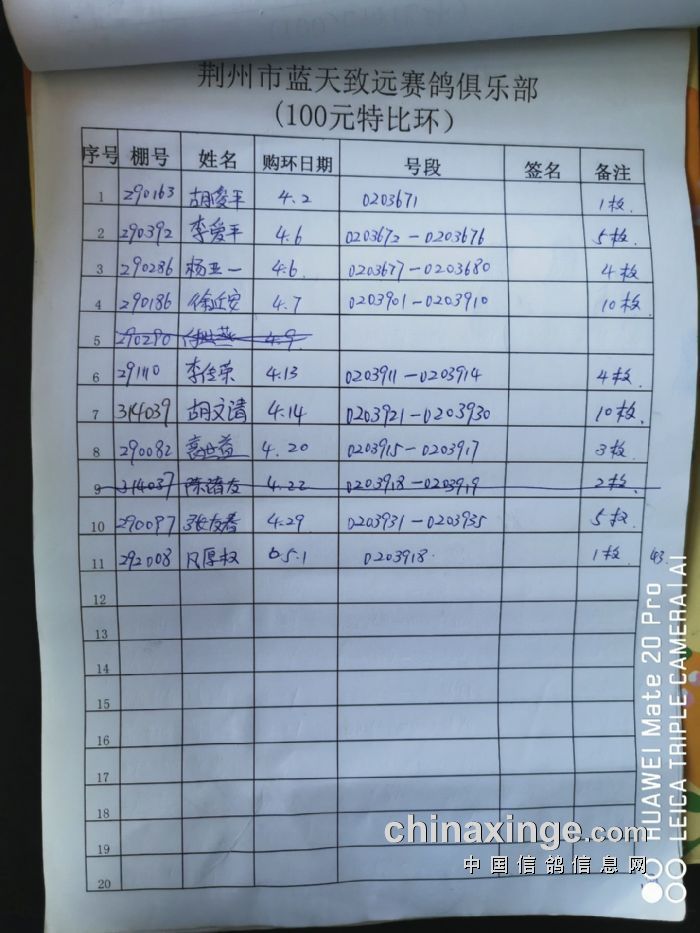 荆州市蓝天致远赛鸽俱乐部
(100元特比环)
序号 棚号 姓名 购环日期 号段 签名 备注
1 290163 胡爱平 4.2 0203671 1枚
2 290392 李爱平 4.6 0203672-0203676 5枚
3 290286 杨亚一 4.6 0203677-0203680 4枚
4 290186 徐近安 4.7 0203901-0203910 10枚
5 290290 4.9
6 291110 李传荣 4.13 0203911-0203914 4枚
7 314039 胡文清 4.14 0203921-0203930 10枚
8 290082 高世益 4.20 0203915-0203917 3枚
9 314037 陈诸友 4.22 0203918-0203919 2枚
10 290097 张友春 4.29 0203931-0203935 5枚
11 292008 厚权 5.1 0203918 1枚 43
12
13
14
15
16
17
18
19
20
chinaxinge.com
中国信鸽信息网
HUAWEI Mate 20 Pro
LEICA TRIPLE CAMERA | AI